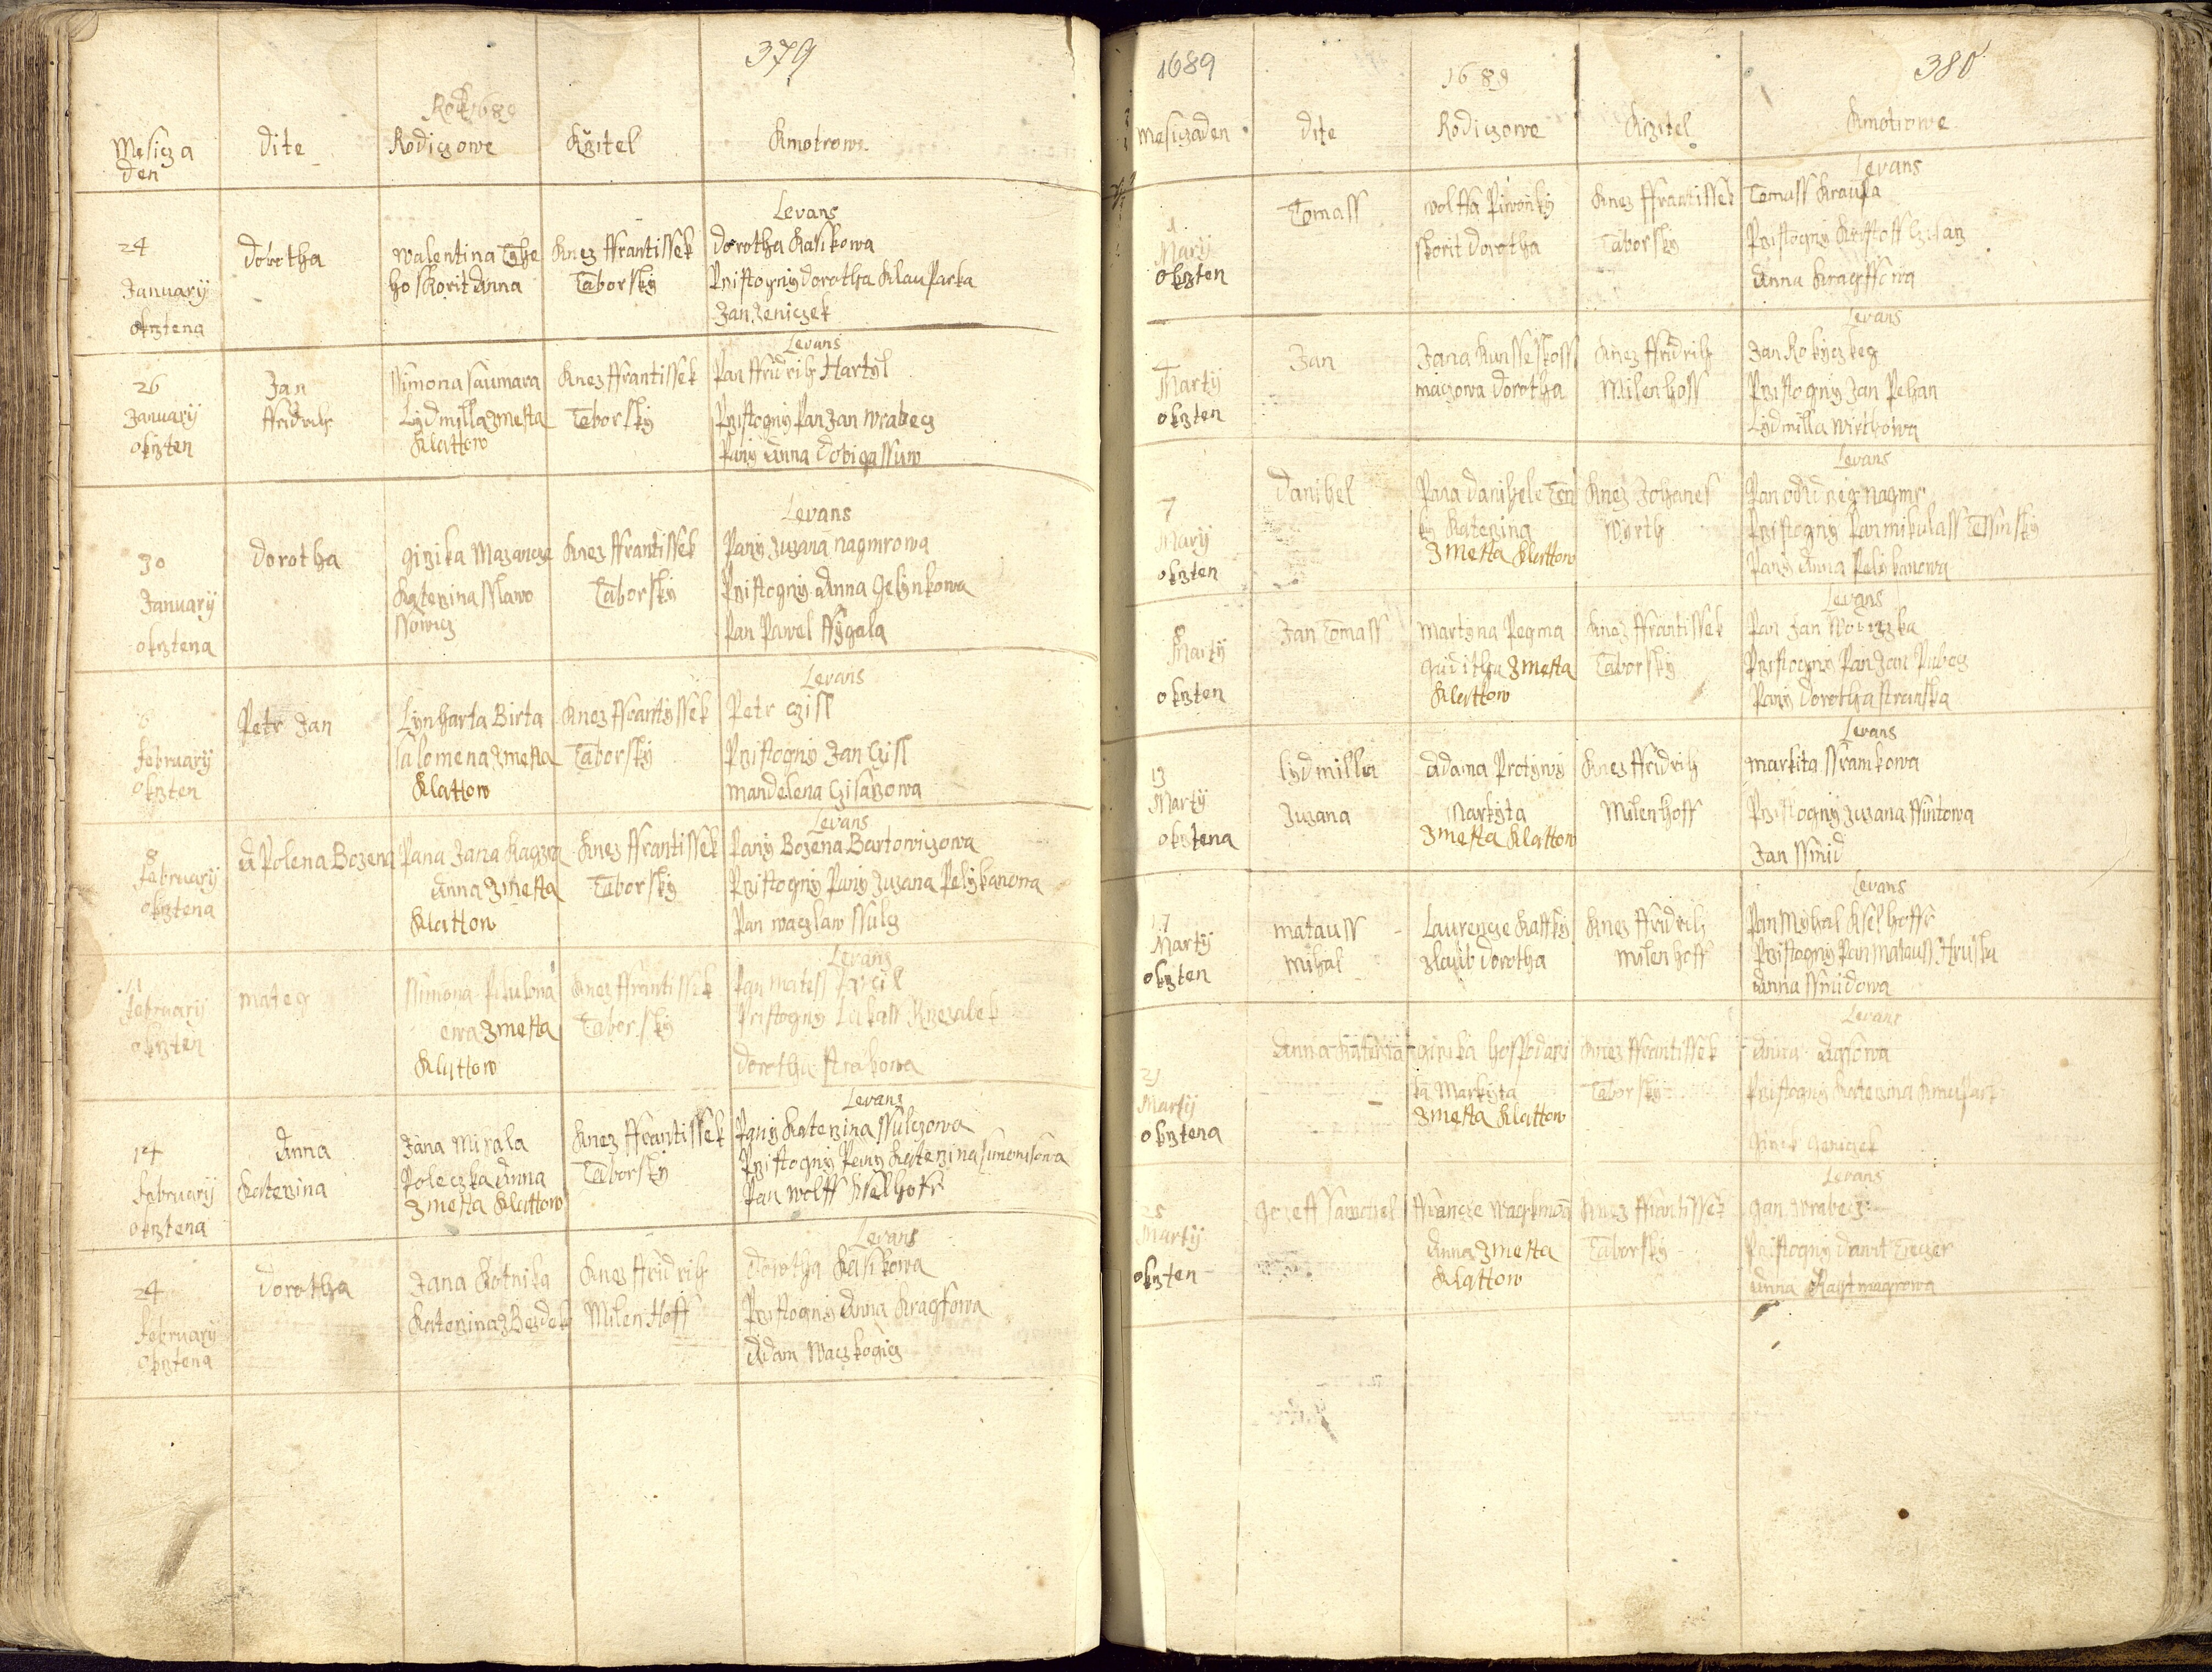 379
Rok 1689
Mesicz a
den
Dite
Rodiczowe
Krztel
Kmotrowe
24
January
okrztena
dorotha
Walentina Tyhe
ho skorit Anna
Knez Ffrantissek
Taborsky
Levans
dorotha Kasikowa
Prziftogny dorotha Klauparka
Jan Jeniczek
26
January
okrzten
Jan
ffridrih
Ssimona Saumara
Lydmilla z mesta
Klattow
Knez Ffrantissek
Taborsky
Levans
Pan ffridrih Hartyl
Przistogny Pan Jan Wrabecz
Pany Anna
30
January
okrztena
dorotha
Girika Mazancze
Katerzina Sslawo
ssowicz
Knez Ffrantissek
Taborsky
Levans
Pany Zuzana Nagmrowa
Przistogny Anna Gelynkowa
Pan Pawel Ffygala
6
february
okrzten
Petr Jan
Lynharta Birta
Salomena z mesta
Klattow
Knez Ffrantyssek
Taborsky
Levans
Petr Czisl
Przistogny Jan Czisl
Mandelena Czisarzowa
8
february
okrztena
APolena Bozena
Pana Jana Kagzra
Anna z mesta
Klattow
Knez Ffrantissek
Taborsky
Levans
Pany Bozena Bartowiczowa
Przistogny Pany Zuzana Pelykanowa
Pan Waczlaw Ssulcz
11
february
okrzten
mateg
Ssimona
ewa z mesta
Klattow
Knez Ffrantissek
Taborsky
Levans
Pan Matess
Przistogny Lukass
dorotha
14
february
okrztena
Anna
Katerzina
Jana Mirala
Poleczka Anna
z mesta Klattow
Knez Ffrantissek
Taborsky
Levans
Pany Katerzina Ssulczowa
Przistogny Pany Katerzina
Pan Wolff Kselhofr
24
february
okrztena
dorotha
Jana Kotnika
Katerzina z Bezdek
Knez Ffridrih
Milen Hoff
Levans
dorotha Kasikowa
Przistogny Anna Kragfowa
Adam Waczkogicz
1689
1689
380
mesicz a den
dite
Rodiczowe
Krztitel
Kmotrowe
1
Mary
okrzten
Tomass
Wolffa Piwonky
skorit Dorotha
Knez Ffrantissek
Taborsky
Levans
Tomass Kraupa
Przistogny Kristoff
Anna Kragffowa
4
Marty
okrzten
Jan
Jana
maczowa Dorotha
Knez Ffridrih
Milenhoff
Levans
Jan Rokyczkeg
Przistogny Jan Pehan
Lydmilla Wirthowa
7
Mary
okrzten
Danihel
Pana Danihele
Katerzina
z mesta Klattow
Knez Johanes
Wyrth
Levans
Pan
Przistogny Pan Mikulass
Pany Anna Pelykanowa
8
Marty
okrzten
Jan Tomass
Martyna Pegma
Guditha z mesta
Klattow
Knez Ffrantissek
Taborsky
Levans
Pan Jan Wodiczka
Przistogny Pan Jan
Pany Dorotha Stranska
13
Marty
okrztena
Lydmilla
Zuzana
Adama Protywy
Markyta
z mesta Klattow
Knez Ffridrih
Milenhoff
Levans
Markita Ssramkowa
Przistogny Zuzana Ffintowa
Jan Ssmid
17
Marty
okrzten
matauss
mihal
Laurencze
Dorotha
Knez Ffridrih
Milenhoff
Levans
Pan Myhal Kselhoffr
Przistogny Pan Matauss Hruska
Anna Ssmidowa
21
Marty
okrztena
Anna
Girika Hospodars
ka Markyta
z mesta Klattow
Knez Ffrantissek
Taborsky
Levans
Anna
Przistogny Katerzina
Girik Geniczek
25
Marty
okrzten
Gozeff Samohel
Ffrancze
Anna z mesta
Klattow
Knez Ffrantissek
Taborsky
Levans
Gan Wrabecz
Przistogny
Anna